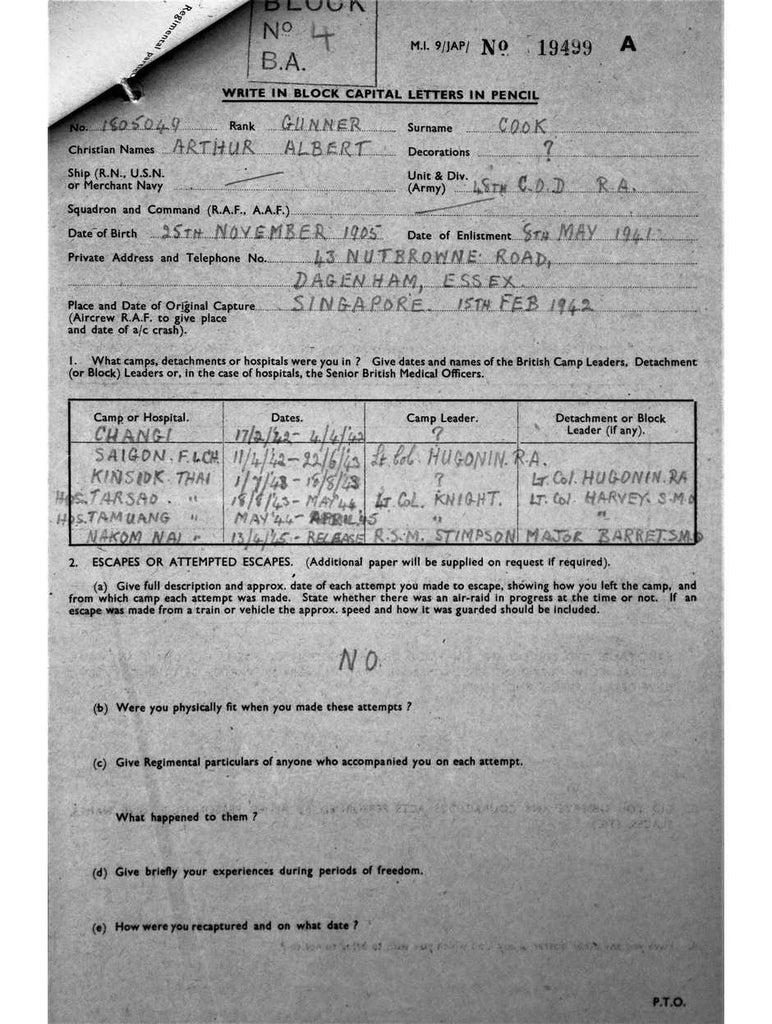 Regimental
BLOCK
Nº 4
B.A.
M.I. 9/JAP/ Nº 19499 A
WRITE IN BLOCK CAPITAL LETTERS IN PENCIL
No. 1805049 Rank GUNNER Surname COOK
Christian Names ARTHUR ALBERT Decorations ?
Ship (R.N., U.S.N. or Merchant Navy
Unit & Div. (Army) 48TH C.O.D R.A.
Squadron and Command (R.A.F., A.A.F.)
Date of Birth 25TH NOVEMBER 1905 Date of Enlistment 8TH MAY 1941
Private Address and Telephone No. 43 NUTBROWNE ROAD,
DAGENHAM, ESSEX.
Place and Date of Original Capture SINGAPORE. 15TH FEB 1942
(Aircrew R.A.F. to give place
and date of a/c crash).
1. What camps, detachments or hospitals were you in ? Give dates and names of the British Camp Leaders, Detachment
(or Block) Leaders or, in the case of hospitals, the Senior British Medical Officers.
Camp or Hospital. Dates. Camp Leader. Detachment or Block Leader (if any).
CHANGI 17/2/42 - 4/4/42 ?
SAIGON. F.I.CH. 11/4/42 - 22/6/43 Lt Col HUGONIN. R.A.
KINSIOK THAI 1/7/43 - 18/8/43 ? LT. Col. HUGONIN. RA
HOS. TARSAO. " 18/8/43 - MAY 44 LT COL. KNIGHT. LT. Col. HARVEY. S.M.O
HOS. TAMUANG " MAY 44 - APRIL 45 " "
NAKOM NAI " 13/4/45 - RELEASE R.S.M. STIMPSON MAJOR BARRET. S.M.O
2. ESCAPES OR ATTEMPTED ESCAPES. (Additional paper will be supplied on request if required).
(a) Give full description and approx. date of each attempt you made to escape, showing how you left the camp, and
from which camp each attempt was made. State whether there was an air-raid in progress at the time or not. If an
escape was made from a train or vehicle the approx. speed and how it was guarded should be included.
NO.
(b) Were you physically fit when you made these attempts ?
(c) Give Regimental particulars of anyone who accompanied you on each attempt.
What happened to them ?
(d) Give briefly your experiences during periods of freedom.
(e) How were you recaptured and on what date ?
P.T.O.